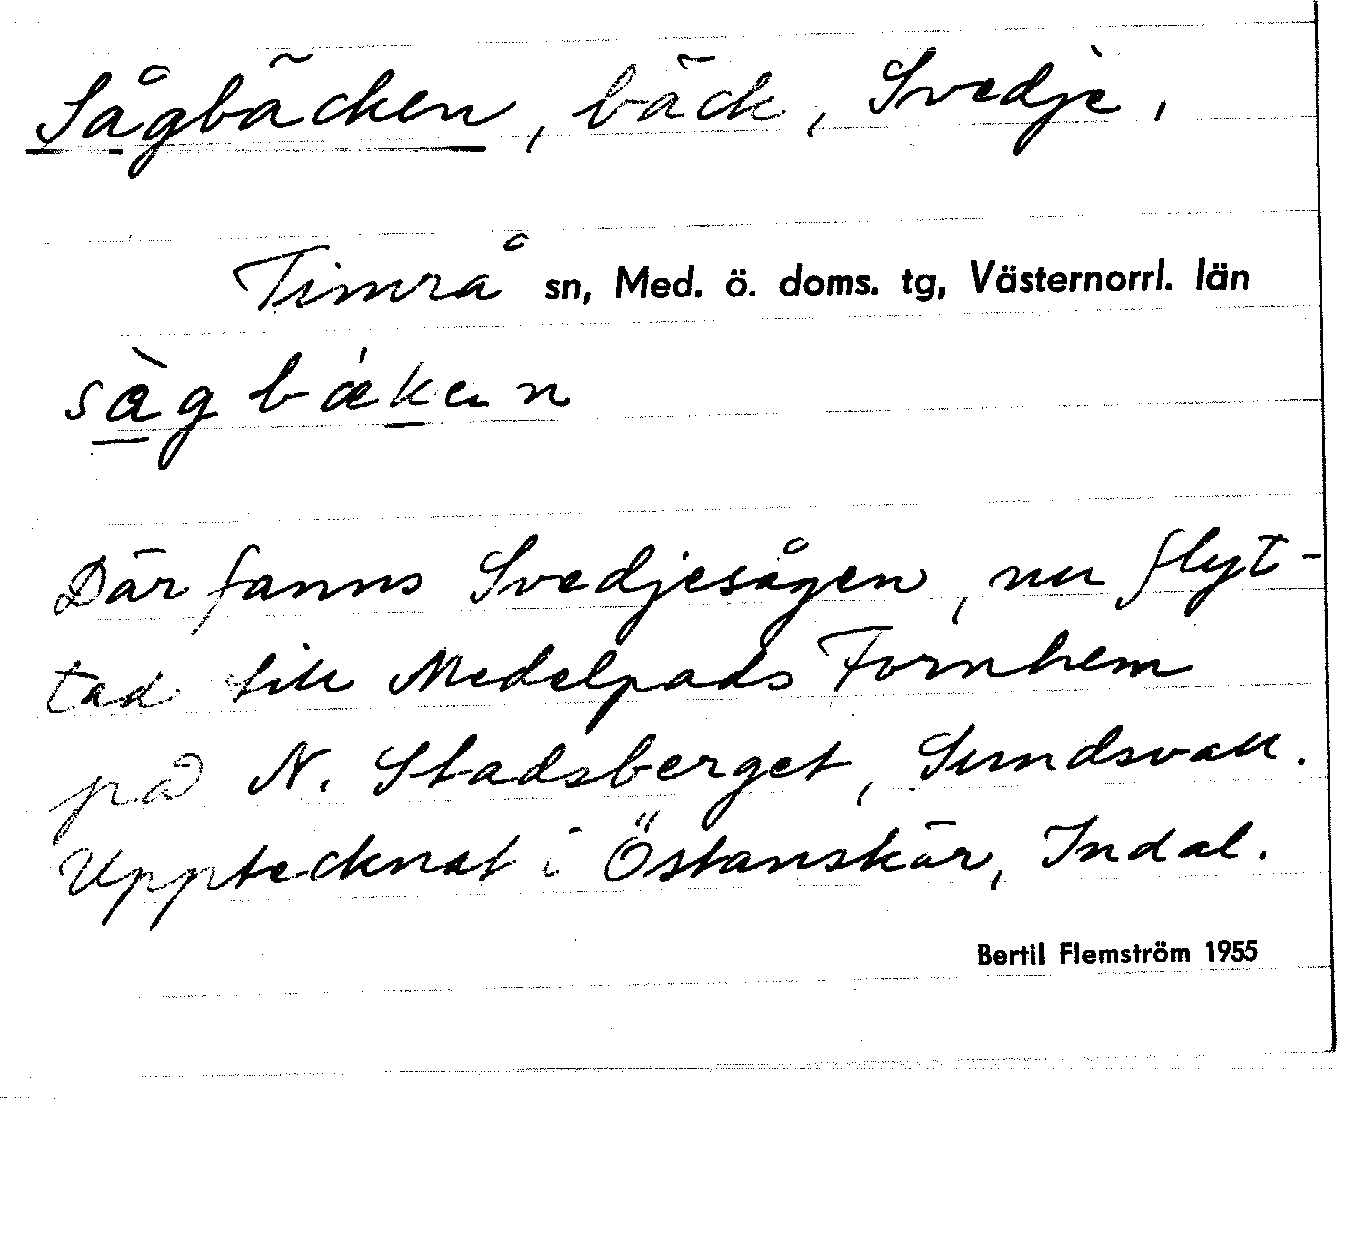 Sågbäcken, bäck, Svedje,
Timrå sn, Med. ö. doms. tg, Västernorrl. län
sàgbǽken
Där fanns Svedjesågen, nu flyt-
tad till Medelpads Fornhem
på N. Stadsberget, Sundsvall.
Upptecknat i Östanskär, Indal.
Bertil Flemström 1955